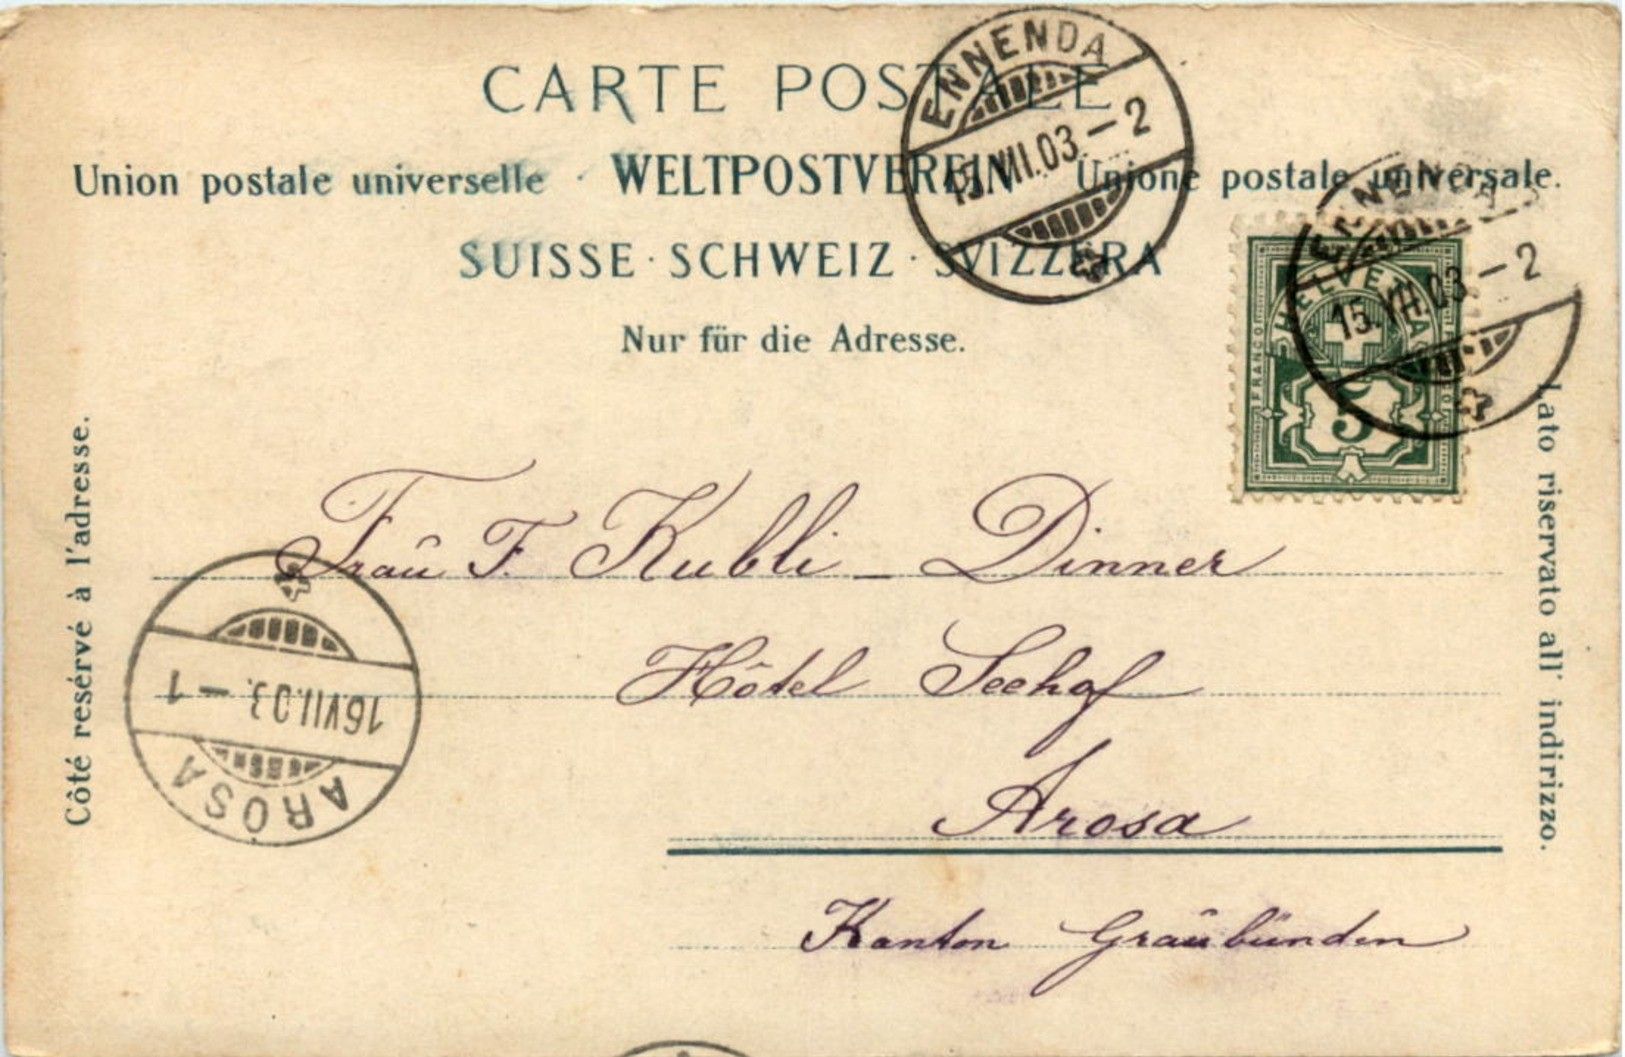 CARTE POSTALE
Union postale universelle · WELTPOSTVEREIN · Unione postale universale.
SUISSE · SCHWEIZ · SVIZZERA
Nur für die Adresse.
ENNENDA
15.VII.03.–2
ENNENDA
15.VII.03.–2
HELVETIA
FRANCO
FRANCO
5
Côté resérvé à l'adresse.
Lato riservato all' indirizzo.
Fraû F. Kubli – Dinner
Hôtel Seehof
Arosa
Kanton Graûbünden
AROSA
16.VII.03.–1